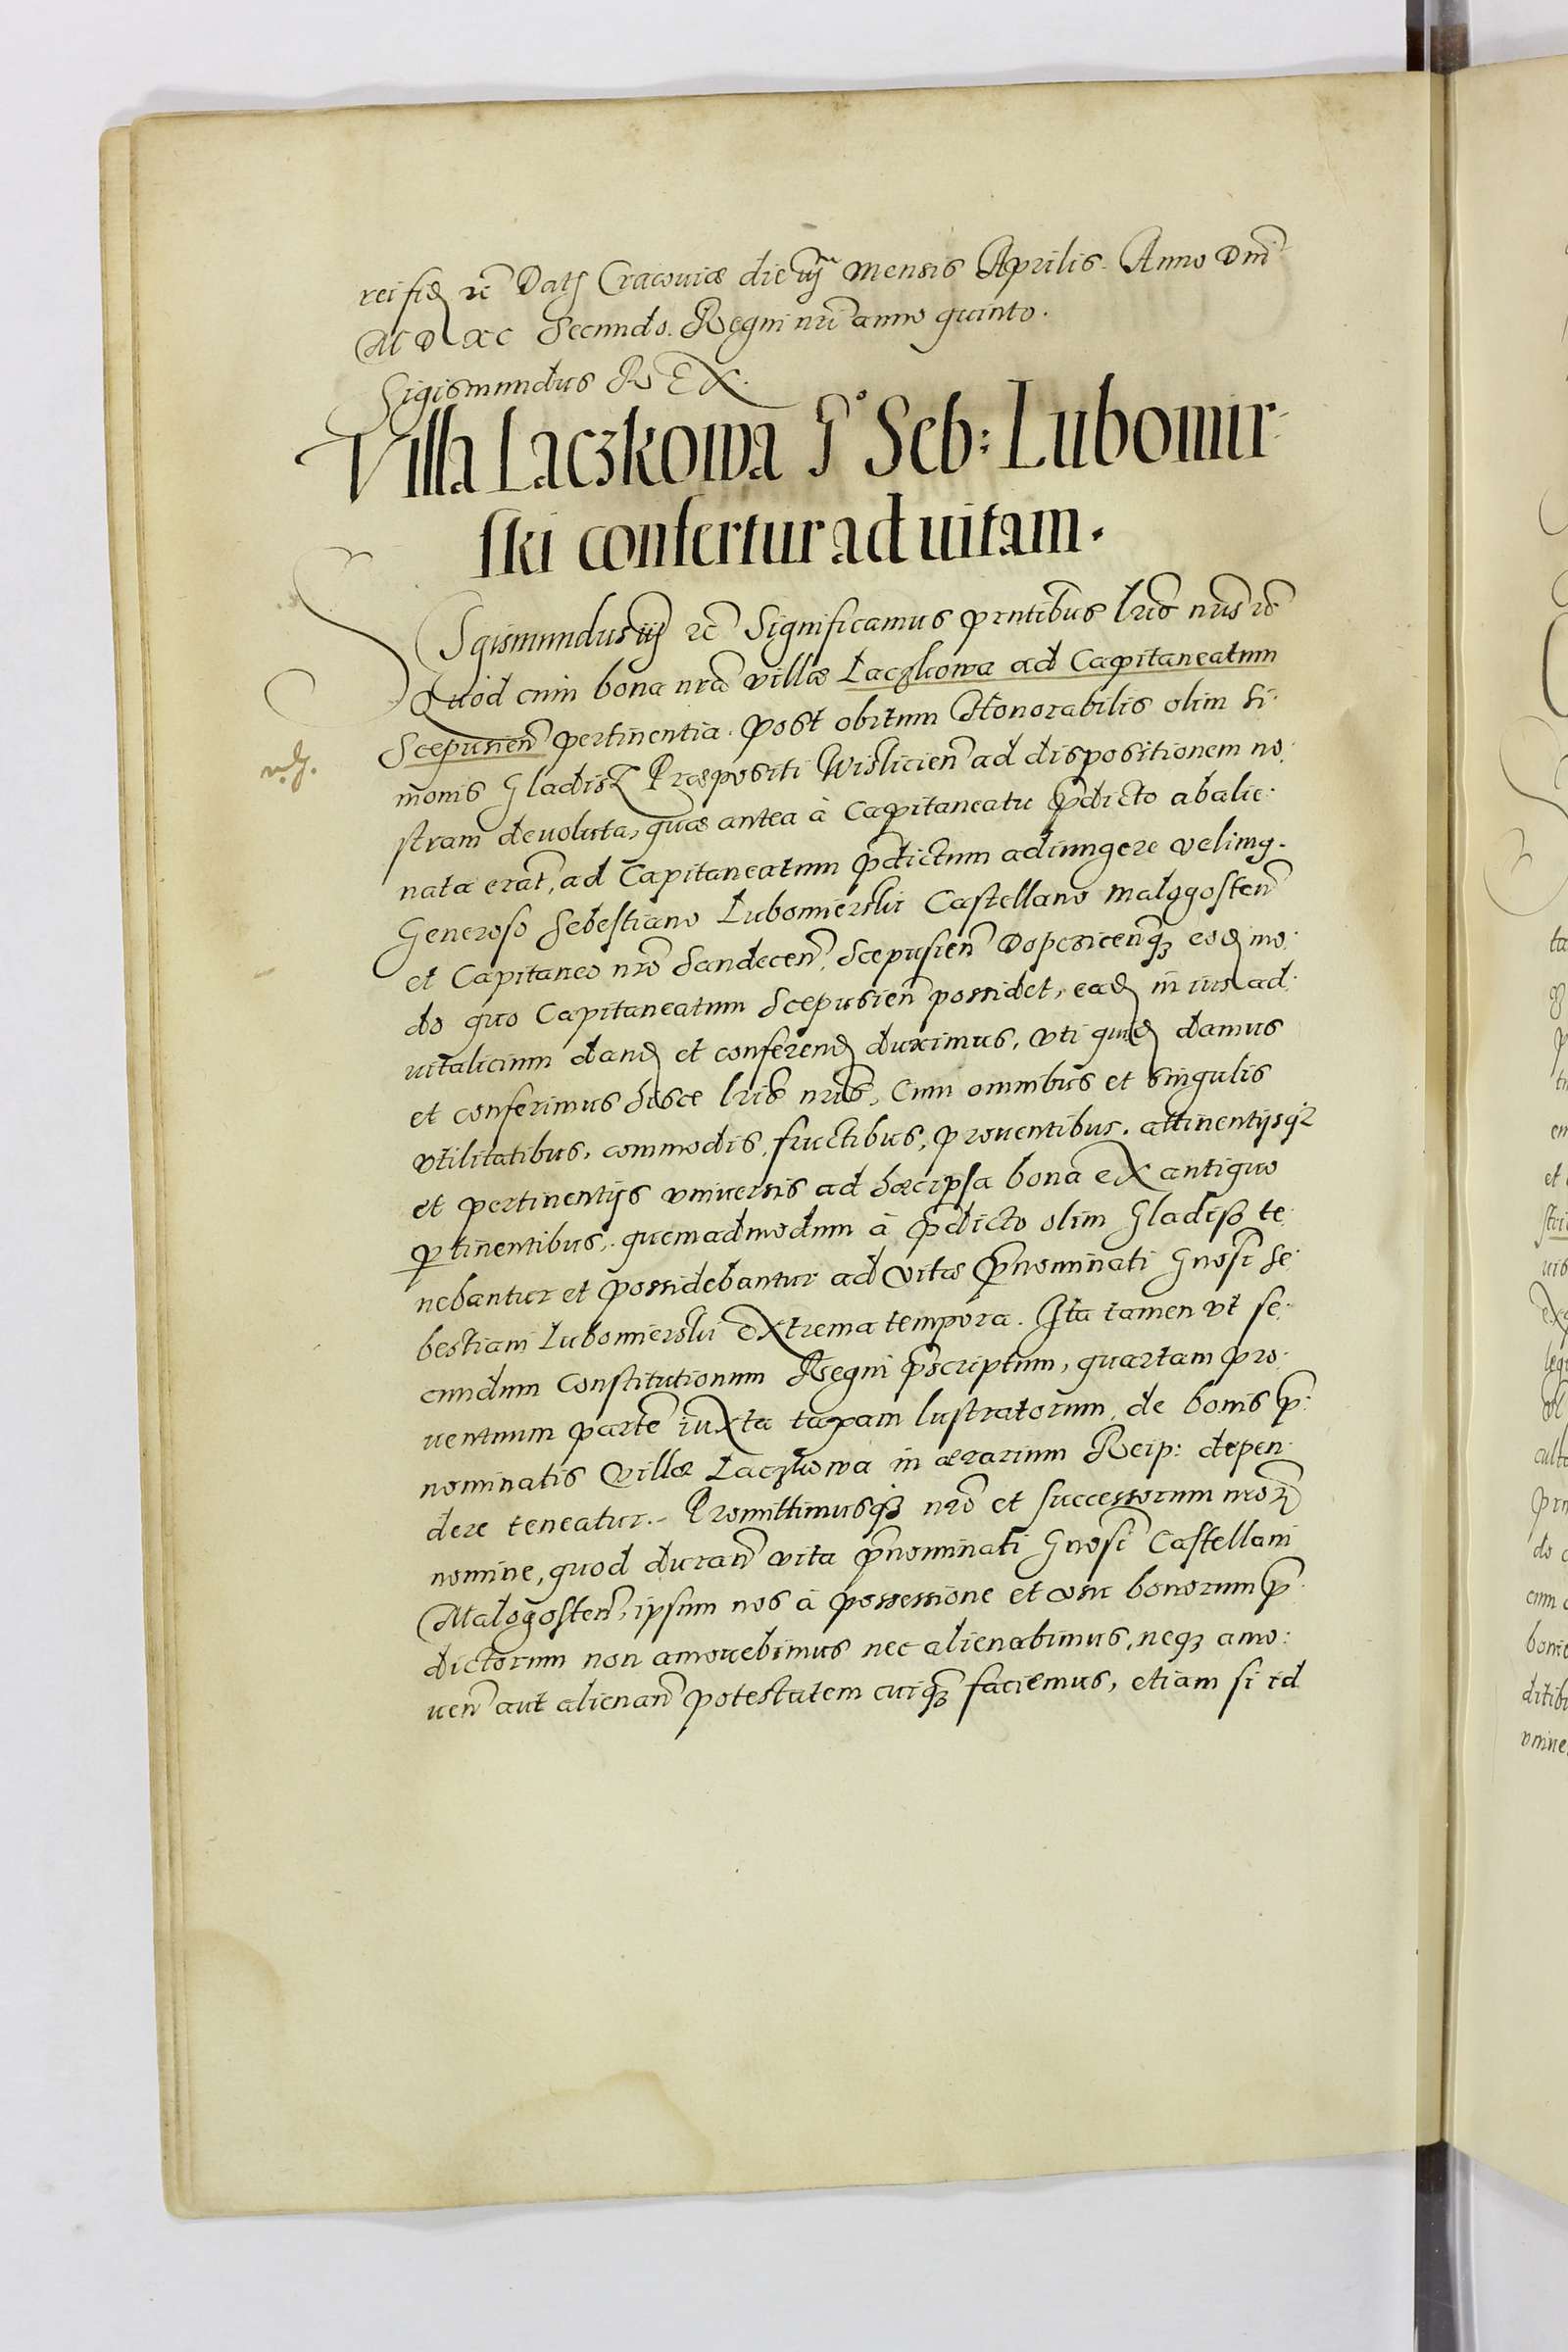 rei fid ꝛc Dat Cracouiæ die iij mensis Aprilis. Anno Dni
M D XC Secundo. Regni nri anno quinto.
Sigismundus REX.
Villa Laczkowa Gº Seb: Lubomir-
ski confertur ad uitam.
Sigismundus iij ꝛc Significamus pntibus lris nris ꝛc
Quod cum bona nra villæ Laczkowa ad Capitaneatum
Scepusien pertinentia. post obitum Honorabilis olim Si-
monis Gladisz Præpositi Wislicien ad dispositionem no-
stram deuoluta, quæ antea à Capitaneatu pdicto abalie-
nata erat, ad Capitaneatum pdictum adiungere velimq.
Generoso Sebestiano Lubomierski Castellano malogosten
et Capitaneo nro Sandecen. Scepusien Dopczicenqꝫ eod mo-
do quo Capitaneatum Scepusien possidet, ead in ius ad-
vitalicium dand et conferend duximus, vti quid damus
et conferimus hisce lris nris, Cum omnibus et singulis
vtilitatibus, commodis, fructibus, prouentibus. attinentijsqꝫ
et pertinentijs vniuersis ad hæc ipsa bona ex antiquo
ptinentibus, quemadmodum à pdicto olim Gladiso te-
nebantur et possidebantur ad vitæ pnominati Gnosi Se-
bestiani Lubomierski extrema tempora. Ita tamen vt se-
cundum Constitutionum Regni pscriptum, quartam pro-
uentuum parte iuxta taxam lustratorum, de bonis p:
nominatis villæ Laczkowa in ærarium Reip: depen-
dere teneatur. Promittimusqꝫ nro et successorum nroꝝ
nomine, quod duran vita pnominati Gnosi Castellani
Malogosten, ipsum nos à possessione et vsu bonorum p-
dictorum non amouebimus nec alienabimus, neqꝫ amo:
uen aut alienan potestatem cuiqꝫ faciemus, etiam si id